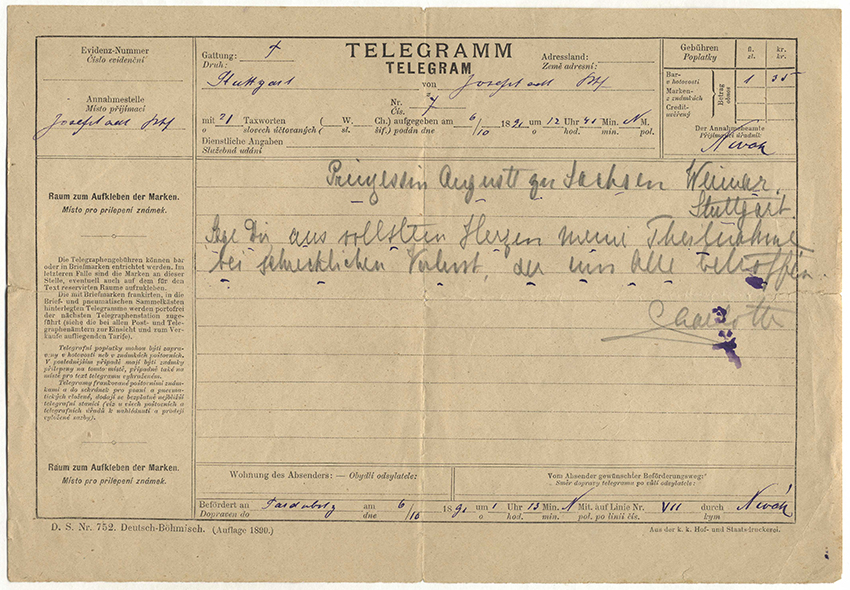 Evidenz-Nummer
Číslo evidenční
Annahmestelle
Místo přijímací
Josefstadt Bhf
Gattung:
Druh:
TELEGRAMM
TELEGRAM
Adressland:
Země adresní:
Stuttgart von Josefstadt Bhf
z
Nr. 7
Čís.
mit 21 Taxworten ( W. Ch.) aufgegeben am 6/10 1891 um 12 Uhr 45 Min. N M.
o slovech účtovaných ( sl. šif.) podán dne o hod. min. pol.
Dienstliche Angaben
Služebná udání
Gebühren
Poplatky
fl. kr.
zl. kr.
Bar-
v hotovosti
Marken-
v známkách
Credit-
úvěrený
Betrag
obnos
1 35
Der Annahmebeamte
Přijímací úředník:
Novák
Raum zum Aufkleben der Marken.
Místo pro prilepení známek.
Die Telegraphengebühren können bar
oder in Briefmarken entrichtet werden. Im
letzteren Falle sind die Marken an dieser
Stelle, eventuell auch auf dem für den
Text reservirten Raume aufzukleben.
Die mit Briefmarken frankirten, in die
Brief- und pneumatischen Sammelkästen
hinterlegten Telegramme werden portofrei
der nächsten Telegraphenstation zuge-
führt (siehe die bei allen Post- und Tele-
graphenämtern zur Einsicht und zum Ver-
kaufe aufliegenden Tarife).
Telegrafní poplatky mohou býti zapra-
veny v hotovosti neb v známkách poštovních.
V poslednějším případě mají býti známky
přilepeny na tomto místě, případně také na
místě pro text telegramu vyhraženém.
Telegramy frankované poštovními znám-
kami a do schránek pro psaní a pneuma-
tických vložené, dodají se bezplatně nejbližší
telegrafní stanici (viz u všech poštovních a
telegrafních úřadů k nahlédnutí a prodeji
vyložené sazby).
Prinzessin August zu Sachsen Weimar
Stuttgart.
Sage Dir aus vollsten Herzen meine Theilnahme
bei schrecklichen Verlust, der uns Alle betroffen.
Charlotte
Raum zum Aufkleben der Marken.
Místo pro prilepení známek.
Wohnung des Absenders: — Obydlí odsylatele:
Vom Absender gewünschter Beförderungsweg:
Směr dopravy telegramu po vůli odsylatele:
Befördert an Pardubitz am 6/10 1891 um 1 Uhr 13 Min. N Mit. auf Linie Nr. VII durch Novák
Dopraven do dne o hod. min. pol. po linii čís. kym
D. S. Nr. 752. Deutsch-Böhmisch. (Auflage 1890.)
Aus der k. k. Hof- und Staatsdruckerei.